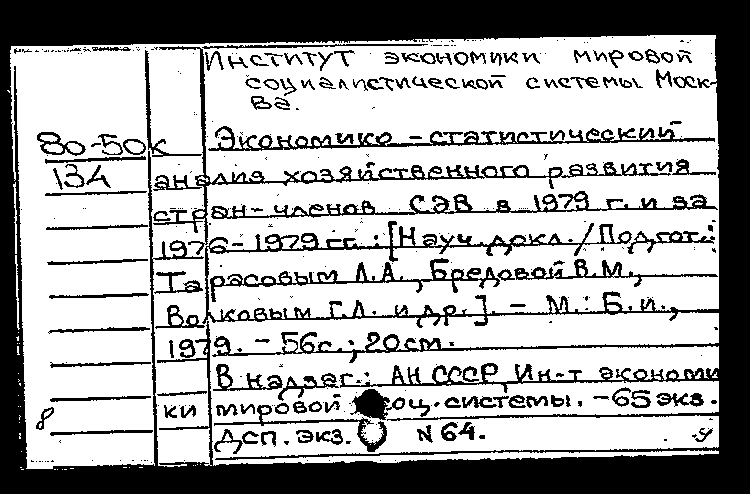 Институт экономики мировой
социалистической системы. Моск-
ва.
80-50к Экономико-статистический
134 анализ хозяйственного развития
стран-членов СЭВ в 1979 г. и за
1976-1979 гг. : [Науч. докл. / Подгот.:
Тарасовым Л.А., Бредовой В.М.,
Волковым Г.Л. и др.]. - М.: Б. и.,
1979. - 56с.; 20см.
В надзаг.: АН СССР, Ин-т экономи
ки мировой соц. системы. - 65 экз.
8
Дсп. экз. N 64.